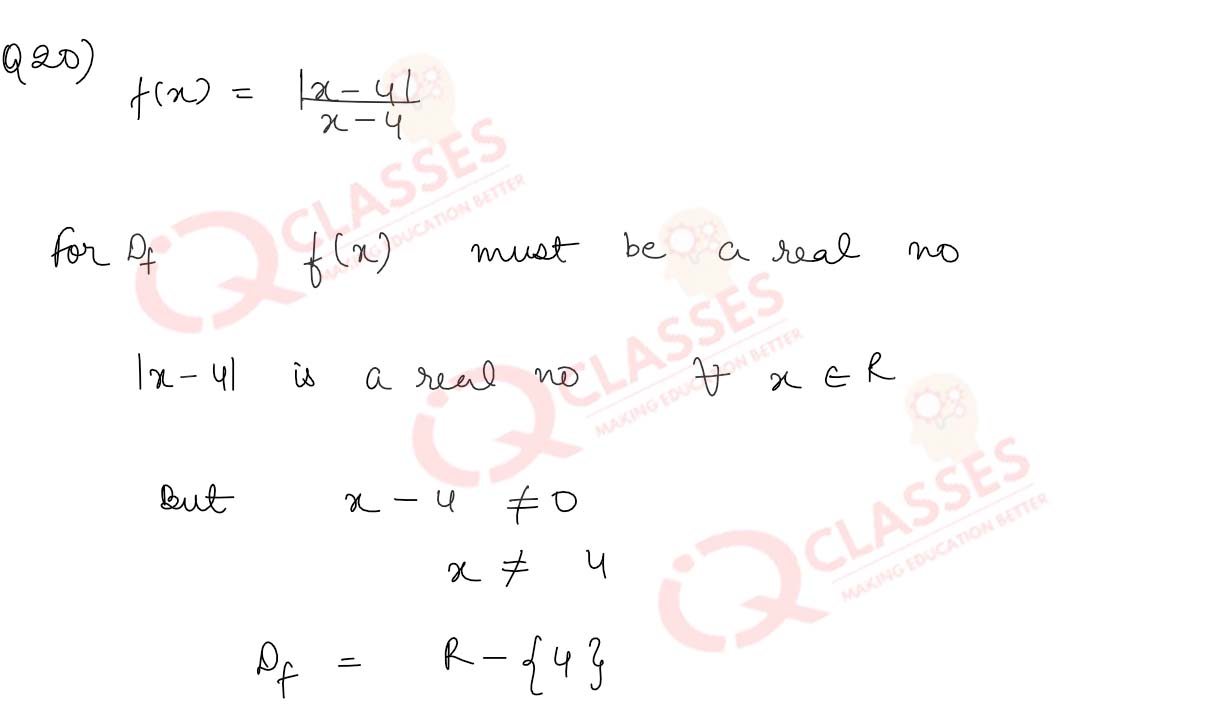 Q20)
f(x) = |x-4| / x-4
for Df f(x) must be a real no
|x-4| is a real no ∀ x ∈ R
But x-4 ≠0
x ≠ 4
Df = R-{4}
IQ CLASSES
MAKING EDUCATION BETTER
IQ CLASSES
MAKING EDUCATION BETTER
IQ CLASSES
MAKING EDUCATION BETTER